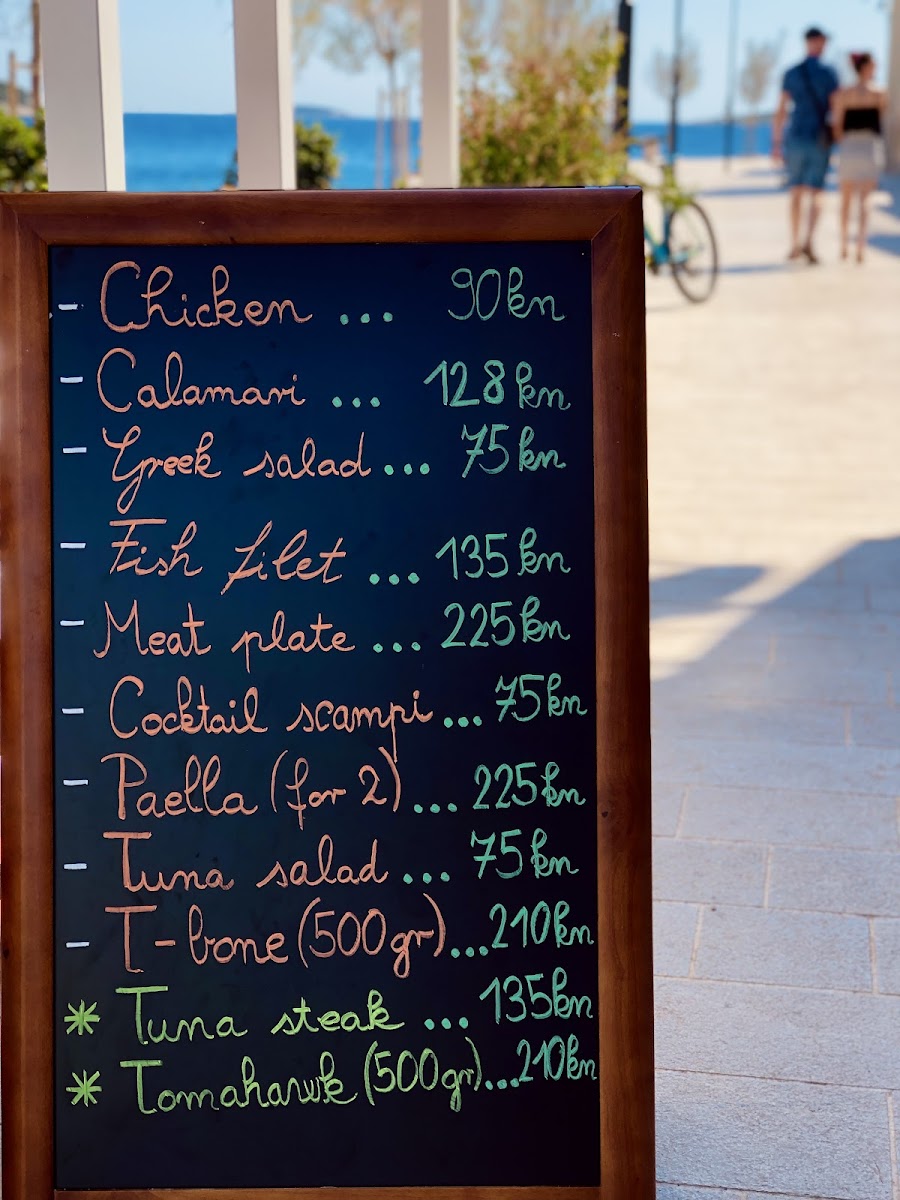 - Chicken ... 90kn
- Calamari ... 128kn
- Greek salad ... 75kn
- Fish filet ... 135kn
- Meat plate ... 225kn
- Cocktail scampi ... 75kn
- Paella (for 2) ... 225kn
- Tuna salad ... 75kn
- T-bone (500gr) ... 210kn
* Tuna steak ... 135kn
* Tomahawk (500gr) ... 210kn